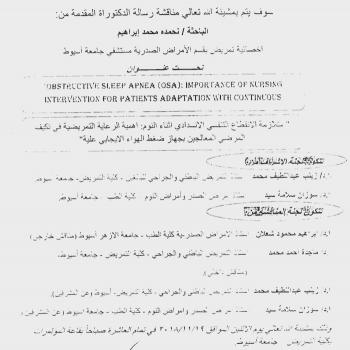 سوف يتم بمشيئة الله تعالى مناقشة رسالة الدكتوراة المقدمة من:
الباحثة / نحمده محمد إبراهيم
اخصائية تمريض بقسم الأمراض الصدرية مستشفي جامعة أسيوط
تحت عنوان
"OBSTRUCTIVE SLEEP APNEA (OSA): IMPORTANCE OF NURSING
INTERVENTION FOR PATIENTS ADAPTATION WITH CONTINUOUS
" متلازمة الانقطاع التنفسي الانسدادي أثناء النوم: اهمية الرعاية التمريضية في تكيف
المرضي المعالجين بجهاز ضغط الهواء الايجابي علية"
تتكون لجنة الاشراف
ا.د/ زينب عبد اللطيف محمد أستاذ التمريض الباطني والجراحي - كلية التمريض - جامعة أسيوط
ا.د/ سوزان سلامة سيد أستاذ أمراض الصدر وأمراض النوم - كلية الطب - جامعة أسيوط
تتكون لجنة المناقشة من:
ا.د/ إبراهيم محمود شعلان أستاذ الأمراض الصدرية كلية الطب - جامعة الازهر أسيوط (مناقش خارجي)
ا.د/ ماجدة احمد محمد أستاذ التمريض الباطني والجراحي - كلية التمريض - جامعة أسيوط
(مناقش داخلي)
ا.د/ زينب عبد اللطيف محمد أستاذ التمريض الباطني والجراحي - كلية التمريض - جامعة أسيوط (عن المشرفين)
ا.د/ سوزان سلامة سيد أستاذ أمراض الصدر وأمراض النوم - كلية الطب - جامعة أسيوط (عن المشرفين)
وذلك بمشيئة الله تعالي يوم الاثنين الموافق ٢٠١٨/١١/١٩ في تمام العاشرة صباحاً بقاعة المؤتمرات